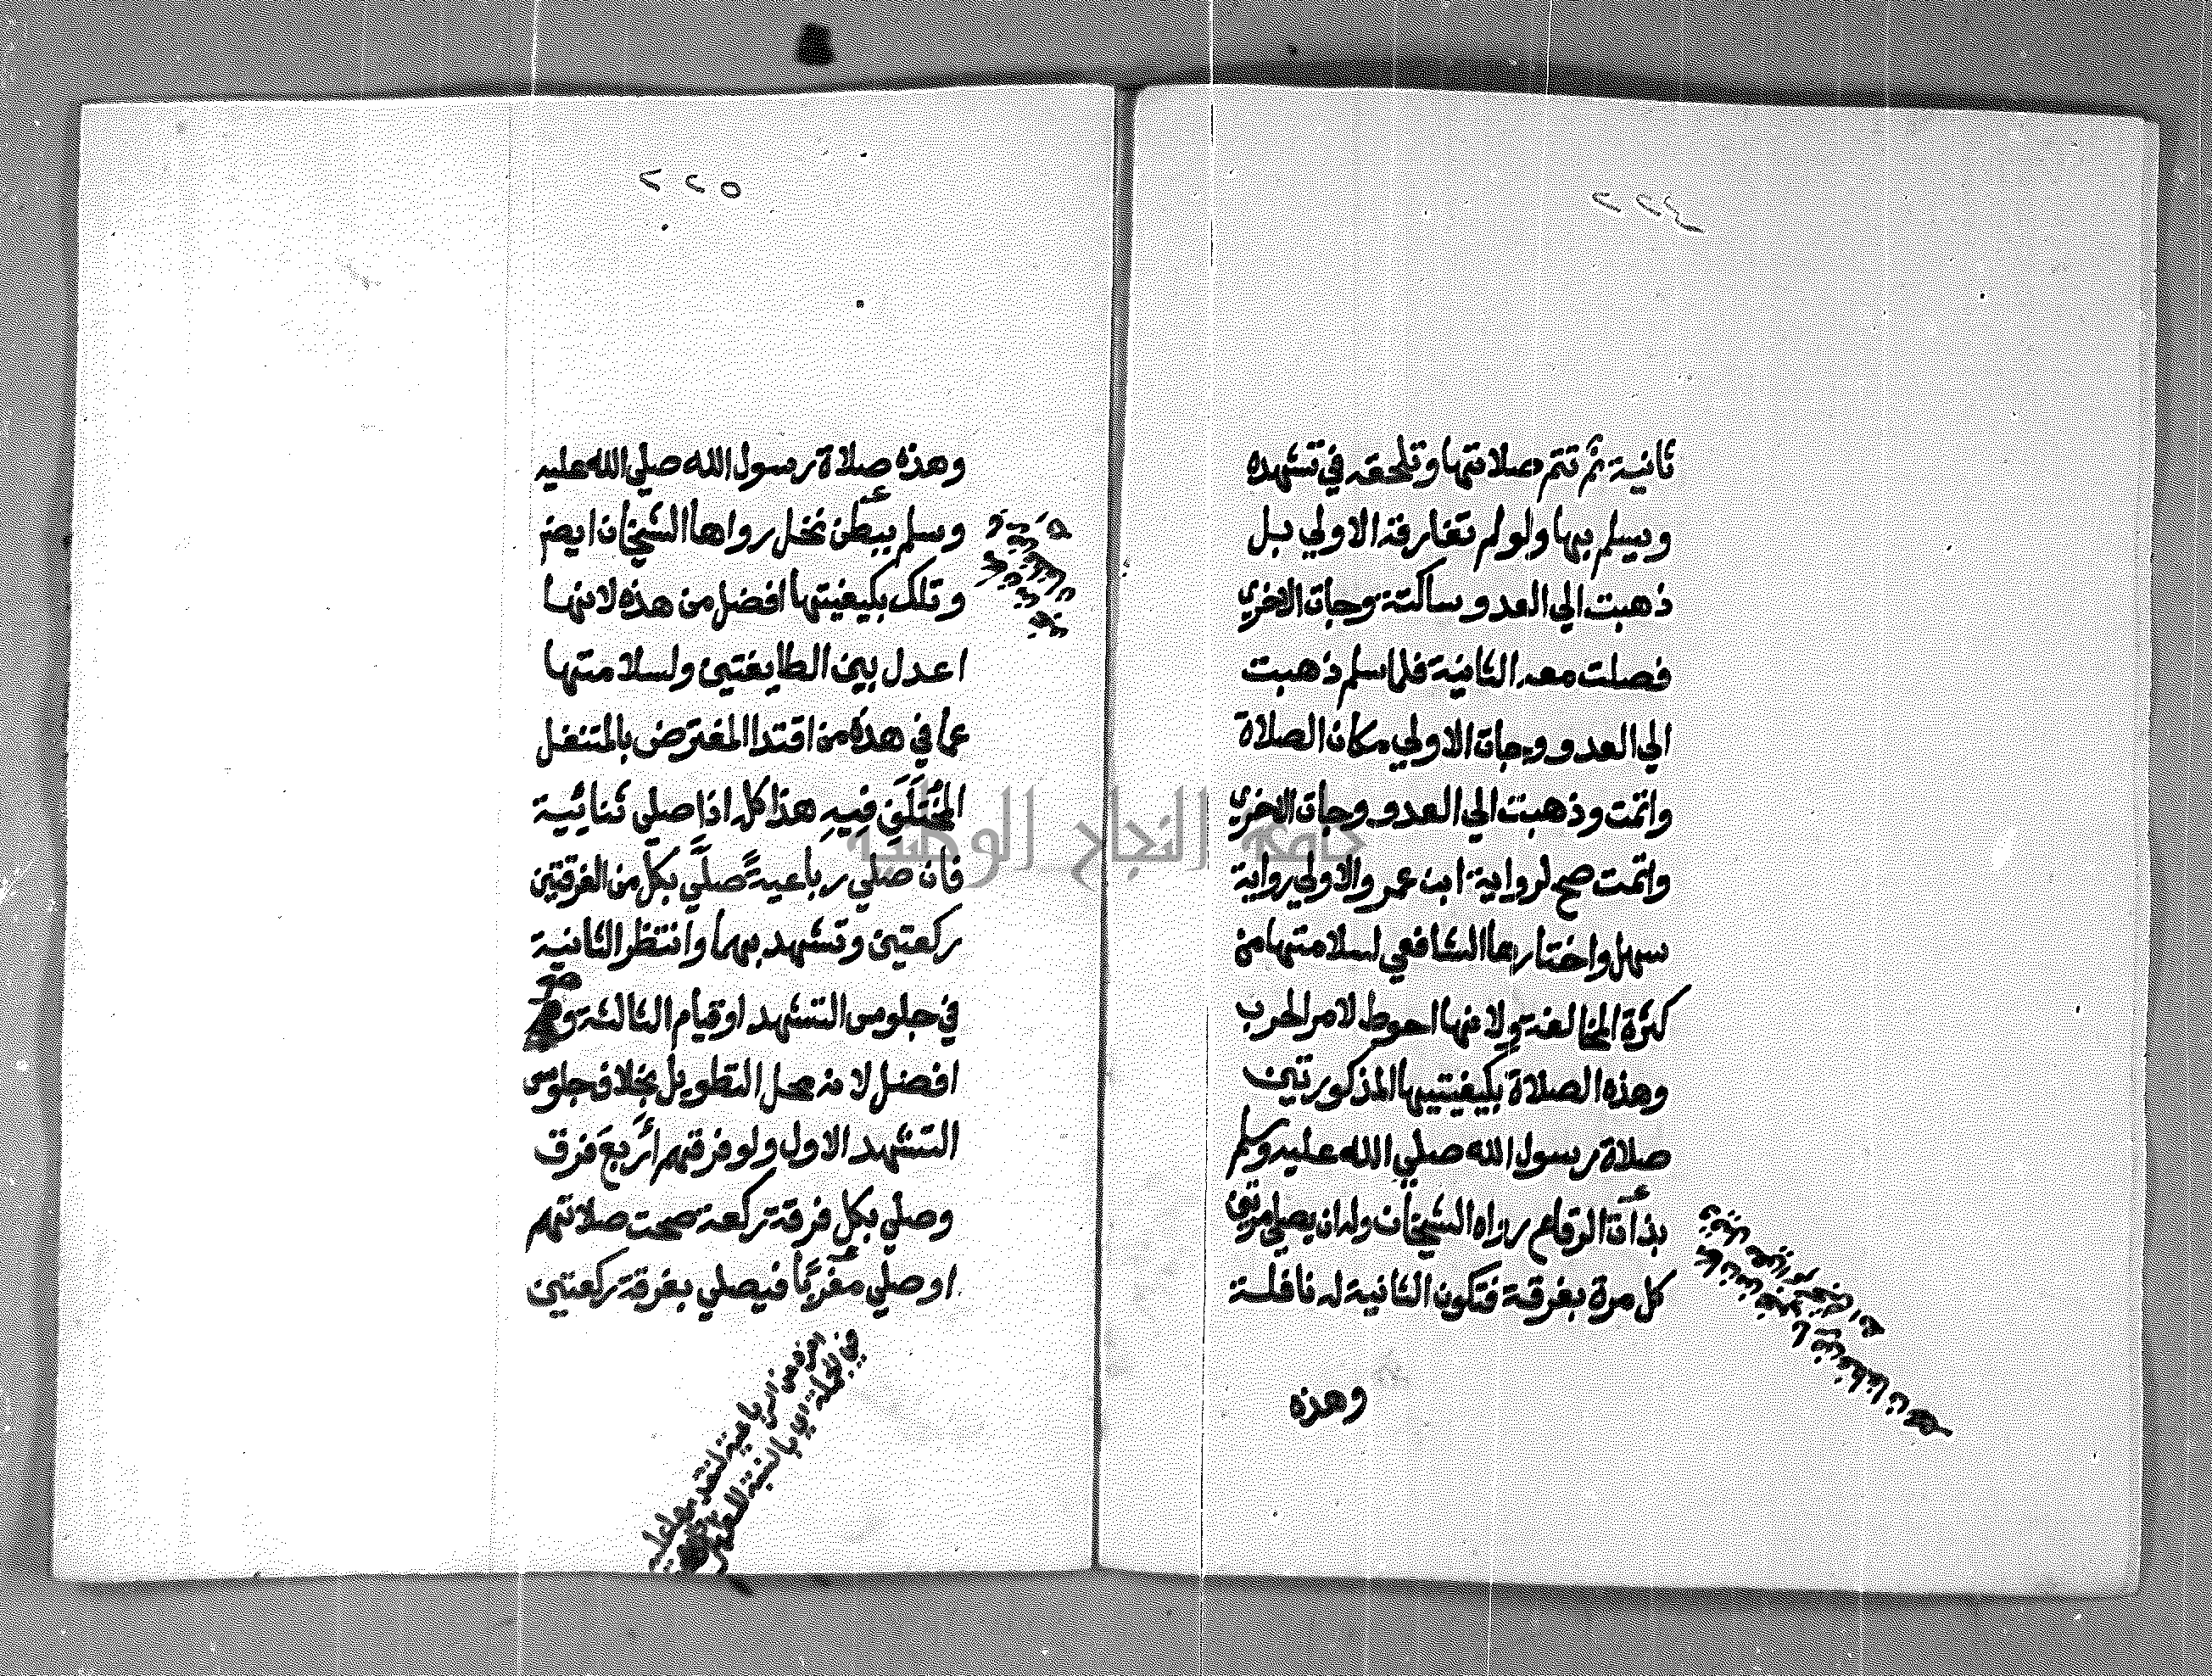 ثانية ثم تتم صلاتها وتلحقه في تشهده
ويسلم بها ولو لم تفارقه الاولي بل
ذهبت الي العدو ساكتة وجات الاخري
فصلت معه الثانية فلما سلم ذهبت
الي العدو وجات الاولي مكان الصلاة
واتمت وذهبت الي العدو وجات الاخري
واتمت صح لرواية ابن عمر والاولي رواية
سهل واختارها الشافعي لسلامتها من
كثرة المخالفة ولانها احوط لامر الحرب
وهذه الصلاة بكيفيتيها المذكورتين
صلاة رسول الله صلي الله عليه وسلم
بذات الرقاع رواه الشيخان وله ان يصلي مرتين
كل مرة بفرقة فتكون الثانية له نافلة
وهذه
وهذه صلاة رسول الله صلي الله عليه
وسلم ببطن نخل رواها الشيخان ايضا
وتلك بكيفيتها افضل من هذه لانها
اعدل بين الطايفتين ولسلامتها
عما في هذه من اقتدا المفترض بالمتنفل
المختلف فيه هذا كله اذا صلي ثنائية
فان صلي رباعية صلي بكل من الفرقتين
ركعتين وتشهد بهما وانتظر الثانية
في جلوس التشهد او قيام الثالثة وهو
افضل لانه محل التطويل بخلاف جلوس
التشهد الاول ولو فرقهم اربع فرق
وصلي بكل فرقة ركعة صحت صلاتهم
او صلي مغربا فيصلي بفرقة ركعتين
جامعة النجاح الوطنية